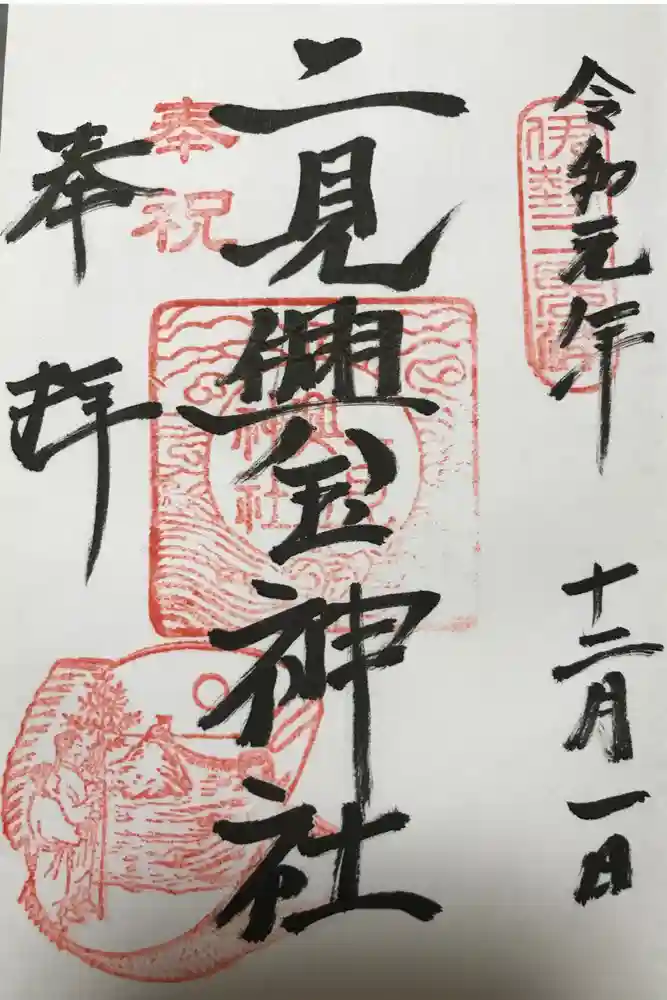 令和元年 十二月一日
伊勢二見鎮
二見興玉神社
二見興玉神社
奉祝
奉拝